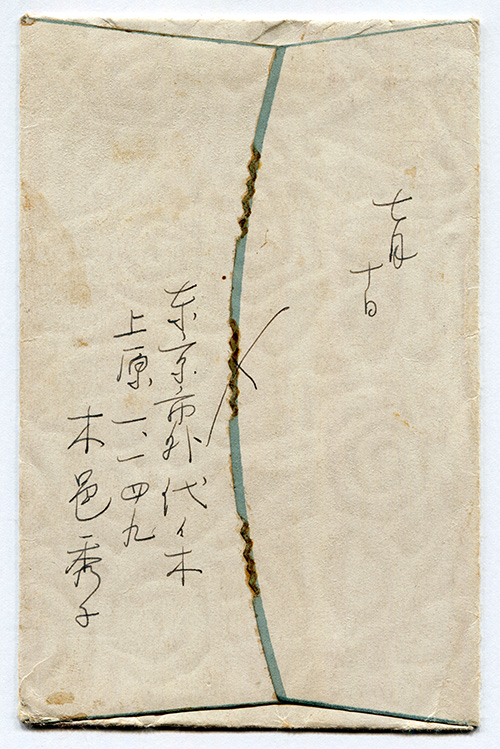 七月
十日
东京市外代々木
上原一、一四九
木邑秀子